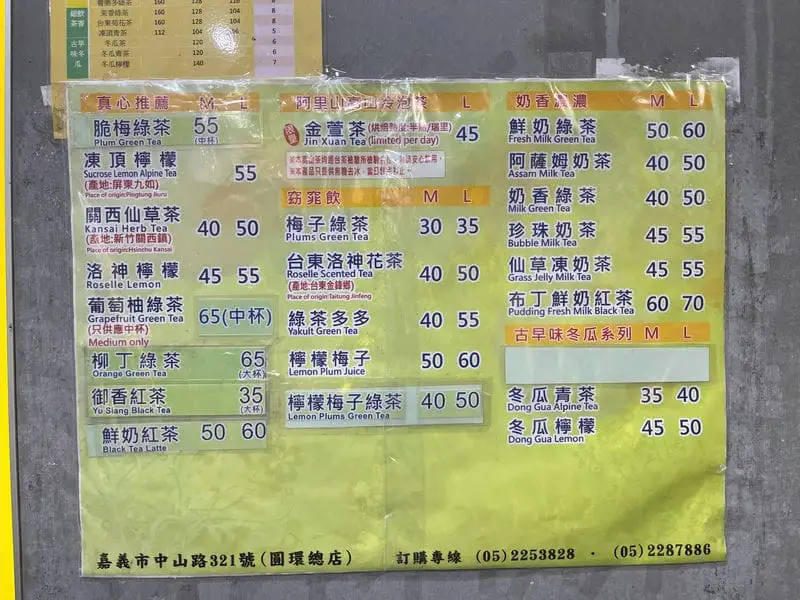 茉香綠茶 160 128 8
台東菊花茶 160 128 8
凍頂青茶 112 104 96 5
古早味冬瓜
冬瓜茶 120 6
冬瓜青茶 120 6
冬瓜檸檬 140 7
真心推薦 M L
脆梅綠茶 55
Plum Green Tea (中杯)
凍頂檸檬 55
Sucrose Lemon Alpine Tea
(產地:屏東九如)
Place of origin:Pingtung Jiuru
關西仙草茶 40 50
Kansai Herb Tea
(產地:新竹關西鎮)
Place of origin:Hsinchu Kansai
洛神檸檬 45 55
Roselle Lemon
葡萄柚綠茶 65(中杯)
Grapefruit Green Tea
(只供應中杯)
Medium only
柳丁綠茶 65
Orange Green Tea (大杯)
御香紅茶 35
Yu Siang Black Tea (大杯)
鮮奶紅茶 50 60
Black Tea Latte
阿里山高山冷泡茶 L
金萱茶 (烘焙熟度:半熟/瑞里) 45
Jin Xuan Tea (limited per day)
窈窕飲 M L
梅子綠茶 30 35
Plums Green Tea
台東洛神花茶 40 50
Roselle Scented Tea
(產地:台東金鋒鄉)
Place of origin:Taitung Jinfeng
綠茶多多 40 55
Yakult Green Tea
檸檬梅子 50 60
Lemon Plum Juice
檸檬梅子綠茶 40 50
Lemon Plums Green Tea
奶香濃濃 M L
鮮奶綠茶 50 60
Fresh Milk Green Tea
阿薩姆奶茶 40 50
Assam Milk Tea
奶香綠茶 40 50
Milk Green Tea
珍珠奶茶 45 55
Bubble Milk Tea
仙草凍奶茶 45 55
Grass Jelly Milk Tea
布丁鮮奶紅茶 60 70
Pudding Fresh Milk Black Tea
古早味冬瓜系列 M L
冬瓜青茶 35 40
Dong Gua Alpine Tea
冬瓜檸檬 45 50
Dong Gua Lemon
嘉義市中山路321號(圓環總店) 訂購專線 (05)2253828 · (05)2287886